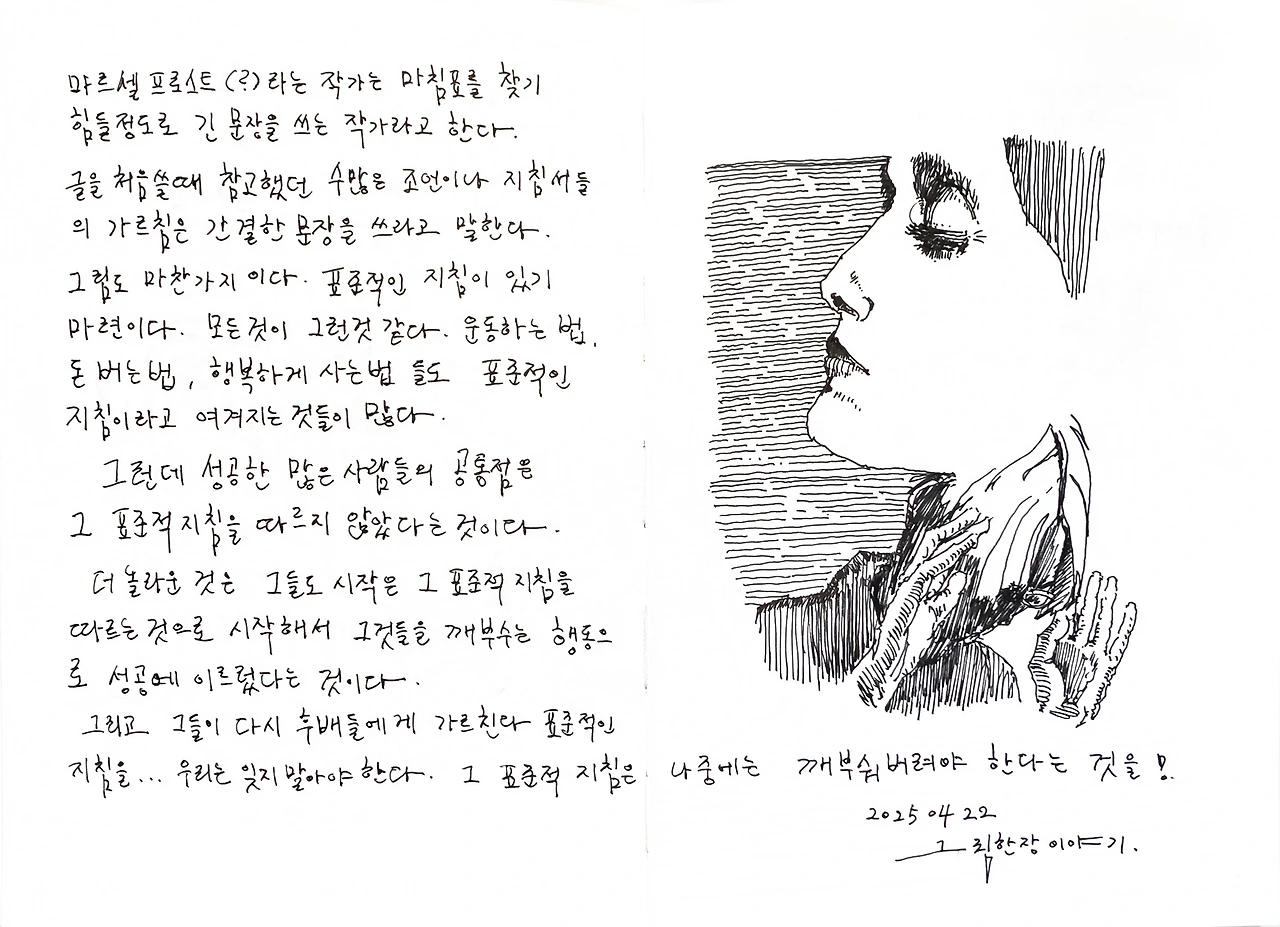 마르셀 프로스트 (?) 라는 작가는 마침표를 찾기
힘들정도로 긴 문장을 쓰는 작가라고 한다.
글을 처음쓸때 참고했던 수많은 조언이나 지침서들
의 가르침은 간결한 문장을 쓰라고 말한다.
그림도 마찬가지 이다. 표준적인 지침이 있기
마련이다. 모든것이 그런것 같다. 운동하는 법,
돈 버는법, 행복하게 사는법 들도 표준적인
지침이라고 여겨지는 것들이 많다.
그런데 성공한 많은 사람들의 공통점은
그 표준적 지침을 따르지 않았다는 것이다.
더 놀라운 것은 그들도 시작은 그 표준적 지침을
따르는것으로 시작해서 그것들을 깨부수는 행동으
로 성공에 이르렀다는 것이다.
그리고 그들이 다시 후배들에게 가르친다 표준적인
지침을... 우리는 잊지말아야한다. 그 표준적 지침은 나중에는 깨부숴버려야 한다는 것을!
2025 04 22
그림한장이야기.